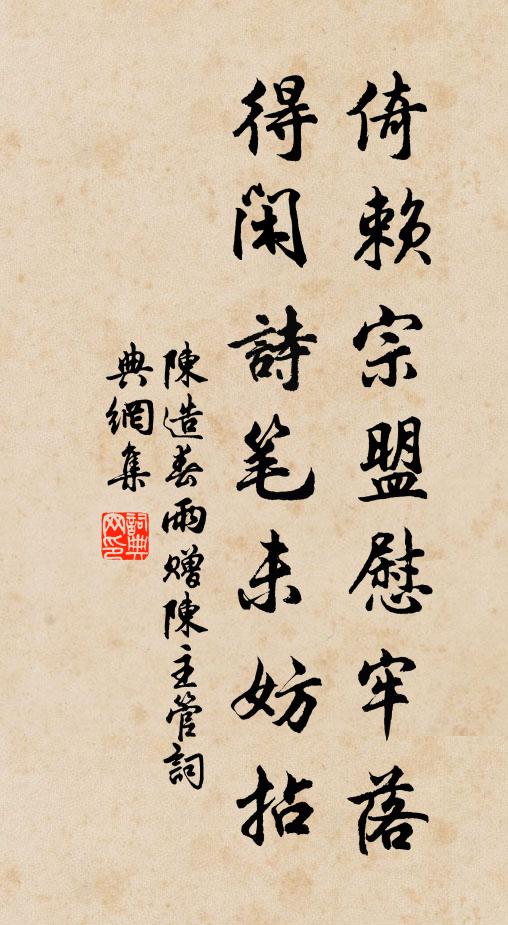 倚赖宗盟慰牢落
得闲詩笔未妨拈
陳造春雨赠陳主管詞
典網集
詞典網印